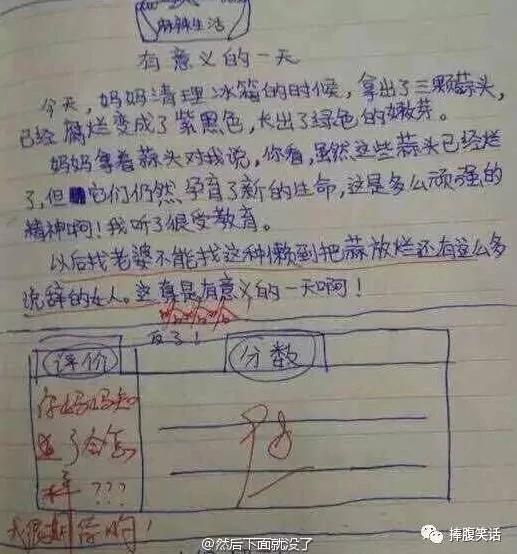 麻辣生活
有意义的一天
今天，妈妈清理冰箱的时候，拿出了三颗蒜头，
已经腐烂变成了紫黑色，长出了绿色的嫩芽。
妈妈拿着蒜头对我说，你看，虽然这些蒜头已经烂
了，但它们仍然孕育了新的生命，这是多么顽强的
精神啊！我听了很受教育。
以后找老婆不能找这种懒到把蒜放烂还有这么多
说辞的女人。这真是有意义的一天啊！
哈哈哈哈
评价
分数
你妈妈知
道了会怎
样？？？
优
我很期待啊！
@然后下面就没了
捧腹笑话